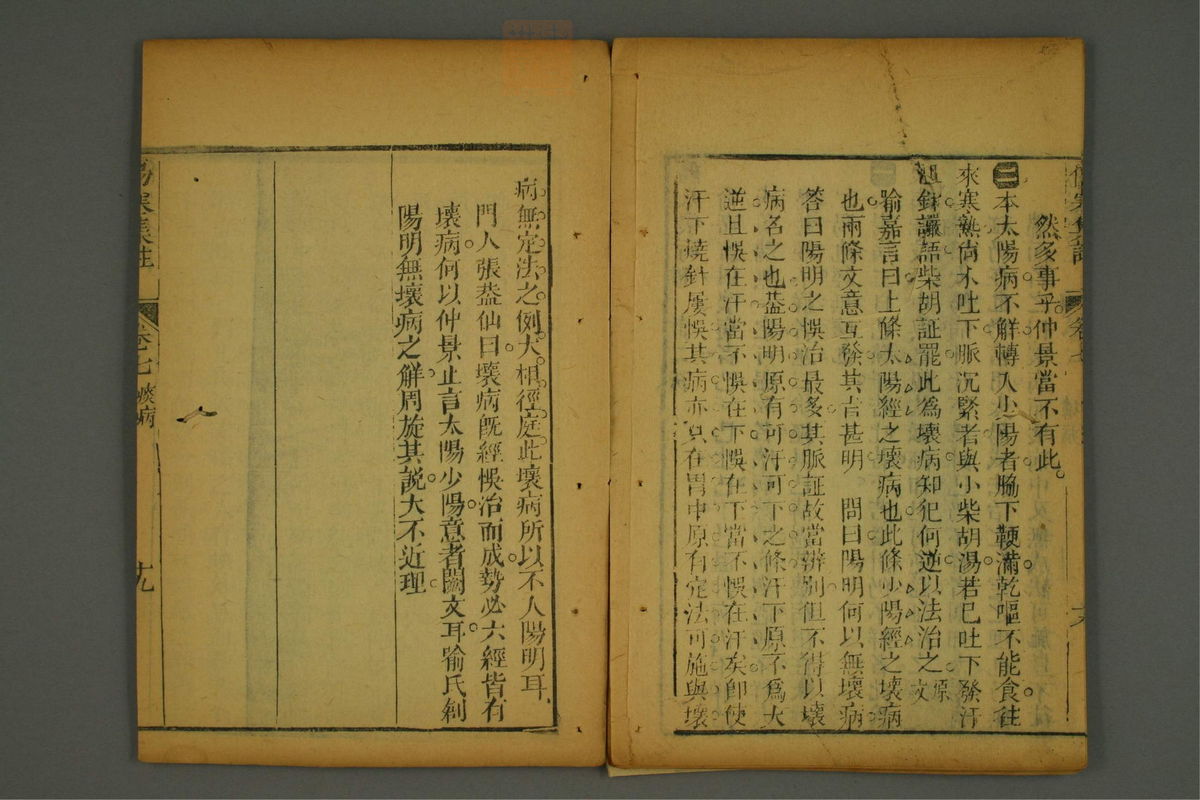 然多事乎仲景當不有此
三本太陽病不解轉入少陽者脇下鞕滿乾嘔不能食往
來寒熱尚不吐下脈沉緊者與小柴胡湯若已吐下發汗
溫針讝語柴胡証罷此為壞病知犯何逆以法治之原文
喻嘉言曰上條太陽經之壞病也此條少陽經之壞病
也兩條文意互發其旨甚明 問曰陽明何以無壞病
答曰陽明之悞治最多其脈証故當辨別但不得以壞
病名之也葢陽明原有可汗可下之條汗下原不為大
逆且悞在汗當不悞在下悞在下當不悞在汗矣即使
汗下燒針屢悞其病亦只在胃中原有定法可施與壞
卷七
病無定法之例大相徑庭此壞病所以不入陽明耳
門人張葢仙曰壞病既經悞治而成勢必六經皆有
壞病何以仲景止言太陽少陽意者闕文耳喻氏剏
陽明無壞病之解周旋其說大不近理
傷寒集註
卷七
痰病
十九